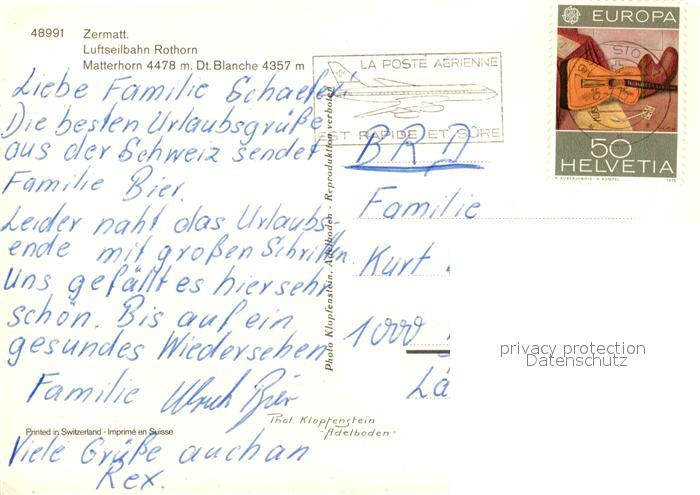 48991 Zermatt.
Luftseilbahn Rothorn
Matterhorn 4478 m. Dt. Blanche 4357 m
Liebe Familie Schaefer!
Die besten Urlaubsgrüße
aus der Schweiz sendet
Familie Bier.
Leider naht das Urlaubs-
ende mit großen Schritten.
Uns gefällt es hier sehr
schön. Bis auf ein
gesundes Wiedersehen
Familie Ulrich Bier
Viele Grüße auch an
Rex.
Printed in Switzerland - Imprimé en Suisse
Phot. Klopfenstein
"Adelboden"
Photo Klopfenstein, Adelboden - Reproduktion verboten
LA POSTE AÉRIENNE
EST RAPIDE ET SÛRE
EUROPA
50
HELVETIA
BRD
Familie
Kurt
1000
Lä
privacy protection
Datenschutz